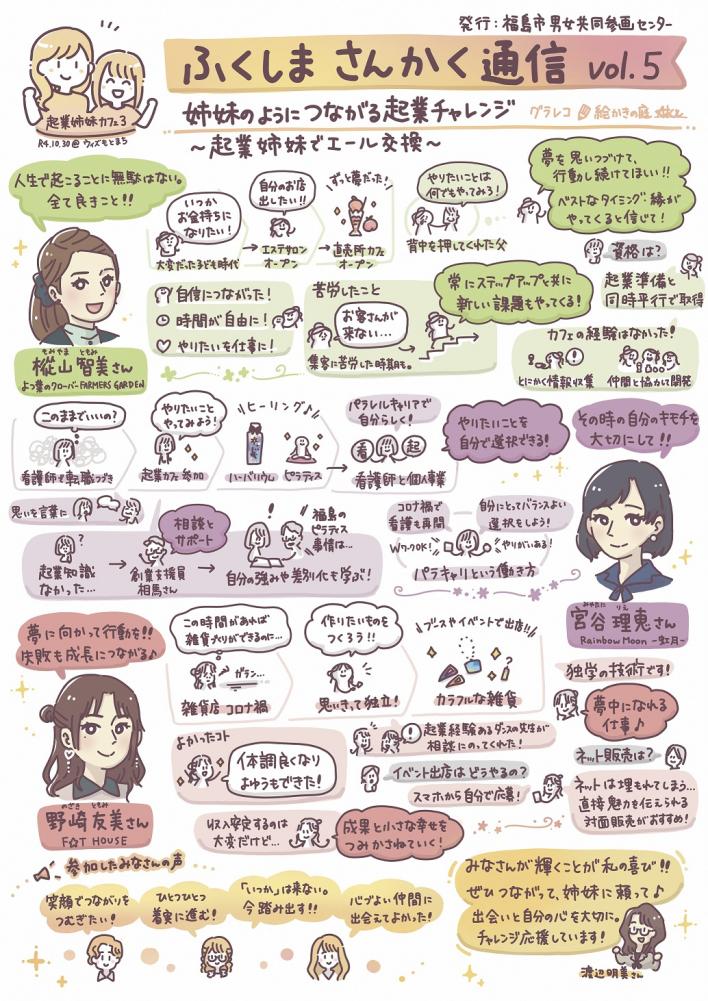 発行:福島市男女共同参画センター
ふくしま さんかく通信 vol.5
起業姉妹カフェ3
R4.10.30@ウィズもとまち
姉妹のようにつながる起業チャレンジ
グラレコ 絵かきの庭
~起業姉妹でエール交換~
人生で起こることに無駄はない。
全て良きこと!!
もみやま ともみ
樅山 智美さん
よつ葉のクローバーFARMERS GARDEN
いつか
お金持ちに
なりたい!
大変だった子ども時代
自分のお店
出したい!!
エステサロン
オープン
ずっと夢だった!
直売所カフェ
オープン
やりたいことは
何でもやってみろ!
背中を押してくれた父
夢を思いつづけて、
行動し続けてほしい!!
ベストなタイミング・縁が
やってくると信じて!
自信につながった!
時間が自由に!
やりたいを仕事に!
苦労したこと
お客さんが
来ない…
集客に苦労した時期も。
常にステップアップと共に
新しい課題もやってくる!
資格は?
起業準備と
同時平行で取得
カフェの経験はなかった!
とにかく情報収集
仲間と協力して開発
このままでいいの?
看護師で転職つづき
やりたいこと
やってみよう!
起業カフェ参加
ヒーリング♪
ハーバリウム ピラティス
パラレルキャリアで
自分らしく!
看 起
看護師と個人事業
やりたいことを
自分で選択できる!
その時の自分のキモチを
大切にして!!
みやたに りえ
宮谷 理恵さん
Rainbow Moon -虹月-
思いを言葉に
?
起業知識
なかった…
相談と
サポート
創業支援員
相馬さん
福島の
ピラティス
事情は…
自分の強みや差別化も学ぶ!
コロナ禍で
看護も再開
自分にとってバランスよい
選択をしよう!
WワークOK!
やりがいある!
パラキャリという働き方
夢に向かって行動を!!
失敗も成長につながる♪
のざき ともみ
野崎 友美さん
F☆T HOUSE
この時間があれば
雑貨づくりができるのに…
ガラン…
雑貨店 コロナ禍
作りたいものを
つくろう!!
思いきって独立!
ブースやイベントで出店!!
カラフルな雑貨
独学の技術です!
夢中になれる
仕事♪
よかったコト
体調良くなり
よゆうもできた!
起業経験あるダンスの先生が
相談にのってくれた!
イベント出店はどうやるの?
スマホから自分で応募!
ネット販売は?
ネットは埋もれてしまう…
直接魅力を伝えられる
対面販売がおすすめ!
収入安定するのは
大変だけど…
成果と小さな幸せを
つみかさねていく!
参加したみなさんの声
笑顔でつながりを
つむぎたい!
ひとつひとつ
着実に進む!
「いつか」は来ない。
今踏み出す!!
バブよい仲間に
出会えてよかった!
みなさんが輝くことが私の喜び!!
ぜひつながって、姉妹に頼って♪
出会いと自分の心を大切に。
チャレンジ応援しています!
渡辺明美さん